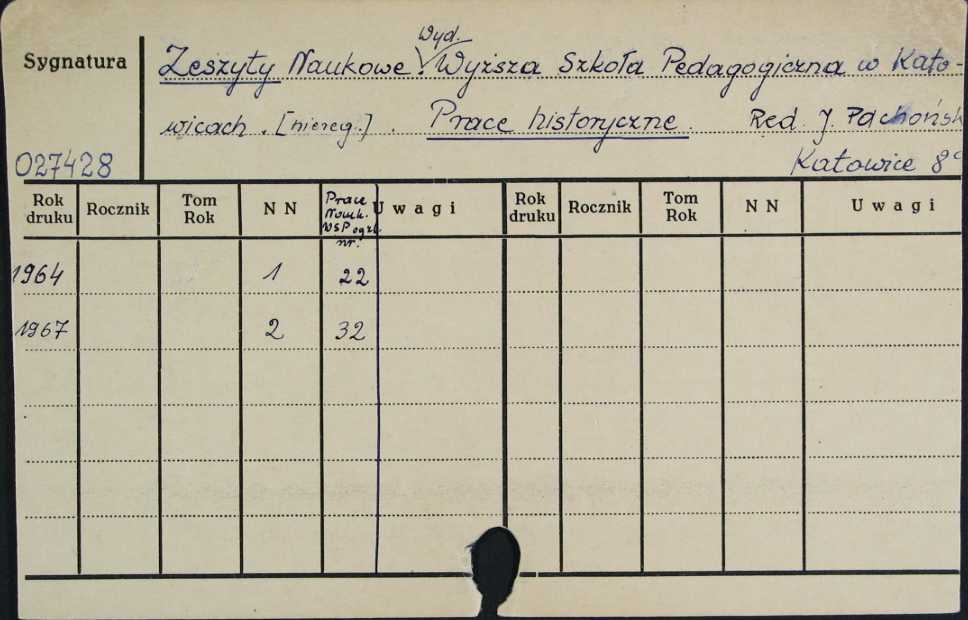 Wyd.
Sygnatura Zeszyty Naukowe. Wyższa Szkoła Pedagogiczna w Kato-
wicach. [niereg.]. Prace historyczne. Red. J. Pachońsk
027428 Katowice 8°
Rok druku Rocznik Tom Rok N N Prace Nauk. WSP ogół. nr. Uwagi Rok druku Rocznik Tom Rok N N Uwagi
1964 1 22
1967 2 32